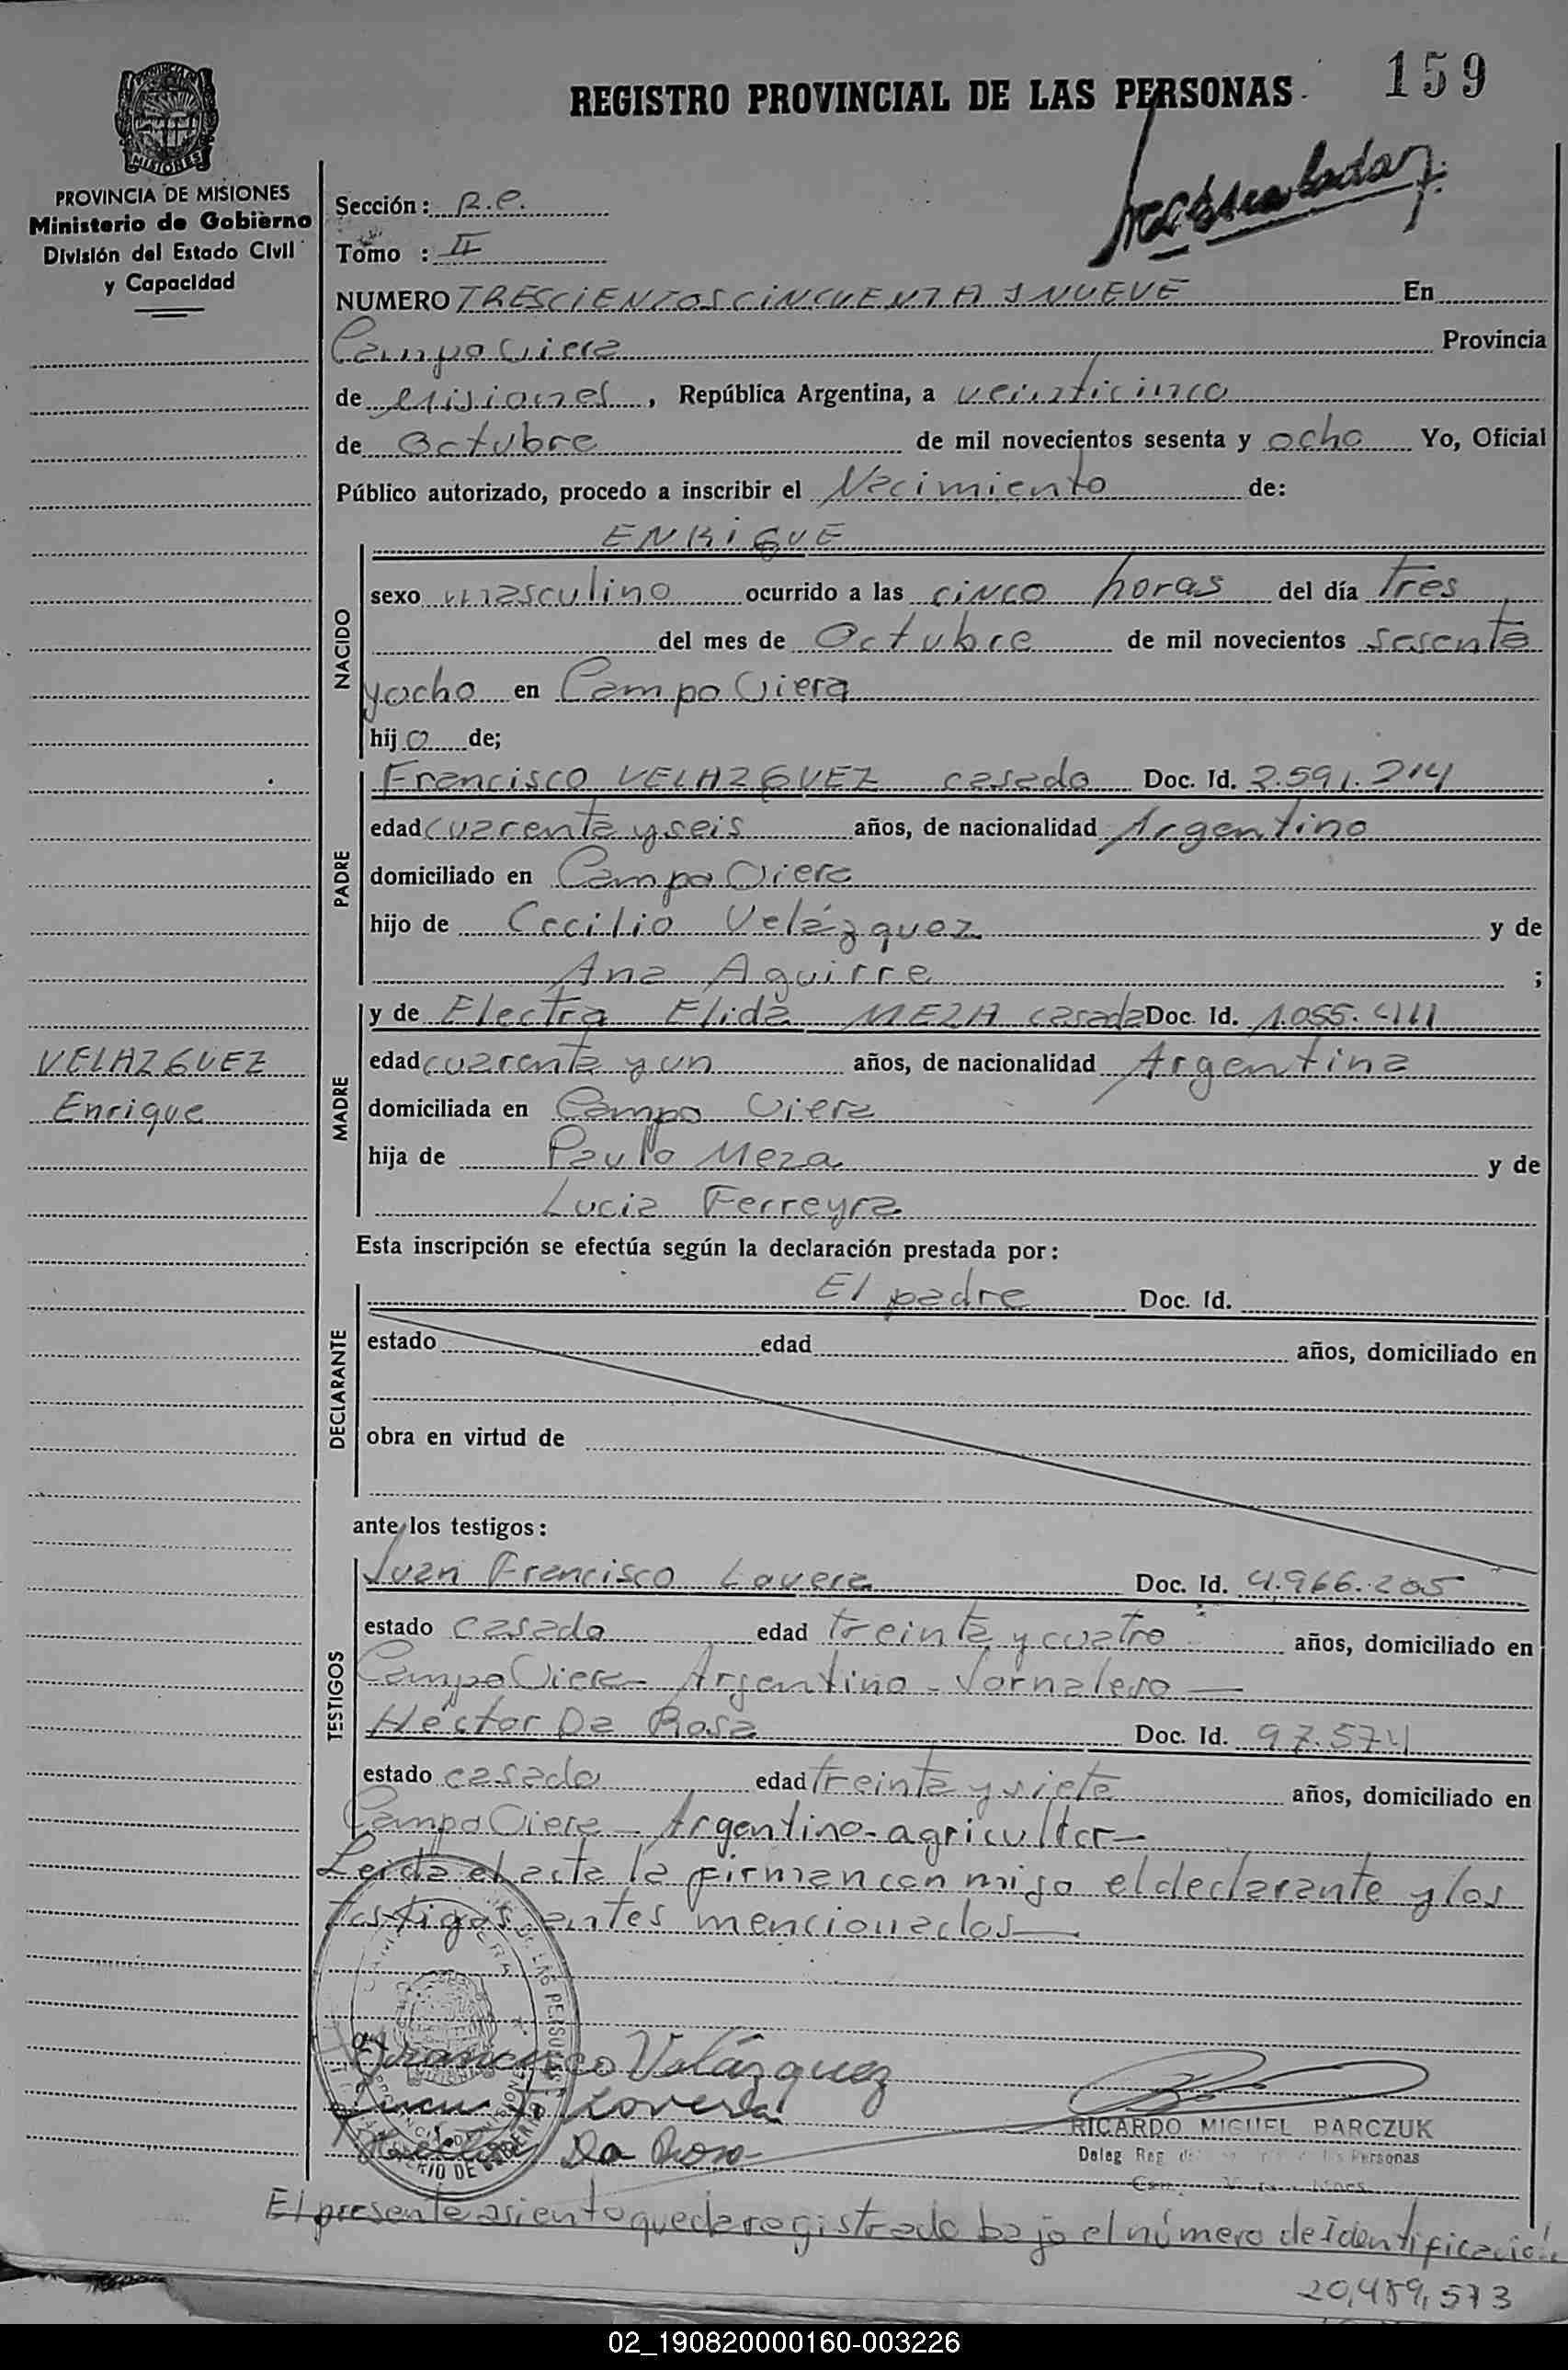 159
REGISTRO PROVINCIAL DE LAS PERSONAS
MISIONES
PROVINCIA DE MISIONES
Ministerio de Gobierno
División del Estado Civil
y Capacidad
Sección: R.C.
Tomo : II
NUMERO TRESCIENTOS CINCUENTA y NUEVE En
Campo Viera Provincia
de Misiones, República Argentina, a veinticinco
de Octubre de mil novecientos sesenta y ocho Yo, Oficial
Público autorizado, procedo a inscribir el Nacimiento de:
NACIDO
ENRIQUE
sexo masculino ocurrido a las cinco horas del día Tres
del mes de Octubre de mil novecientos sesenta
y ocho en Campo Viera
hijo de;
PADRE
Francisco VELAZQUEZ casado Doc. Id. 2.591.214
edad cuarenta y seis años, de nacionalidad Argentino
domiciliado en Campo Viera
hijo de Cecilio Velázquez y de
Ana Aguirre ;
MADRE
y de Electra Elida MEZA casada Doc. Id. 1.055.411
edad cuarenta y un años, de nacionalidad Argentina
domiciliada en Campo Viera
hija de Paulo Meza y de
Lucia Ferreyra
VELAZQUEZ
Enrique
Esta inscripción se efectúa según la declaración prestada por:
DECLARANTE
El padre Doc. Id.
estado edad años, domiciliado en
obra en virtud de
ante los testigos:
TESTIGOS
Juan Francisco Lovera Doc. Id. 4.966.205
estado casado edad treinta y cuatro años, domiciliado en
Campo Viera - Argentino - Jornalero —
Héctor Da Rosa Doc. Id. 97.574
estado casado edad treinta y siete años, domiciliado en
Campo Viera - Argentino - agricultor —
Leida el acta la firman con migo el declarante y los
testigos antes mencionados —
Francisco Velázquez
Juan F. Lovera
Da Rosa
RICARDO MIGUEL BARCZUK
Deleg Reg Personas
El presente asiento queda registrado bajo el número de Identificación
20,489,573
02_190820000160-003226